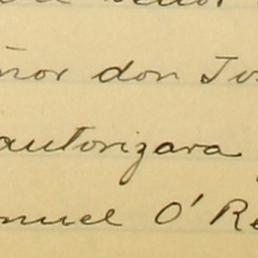 ñor don Jos
autorizara
nuel O'Re